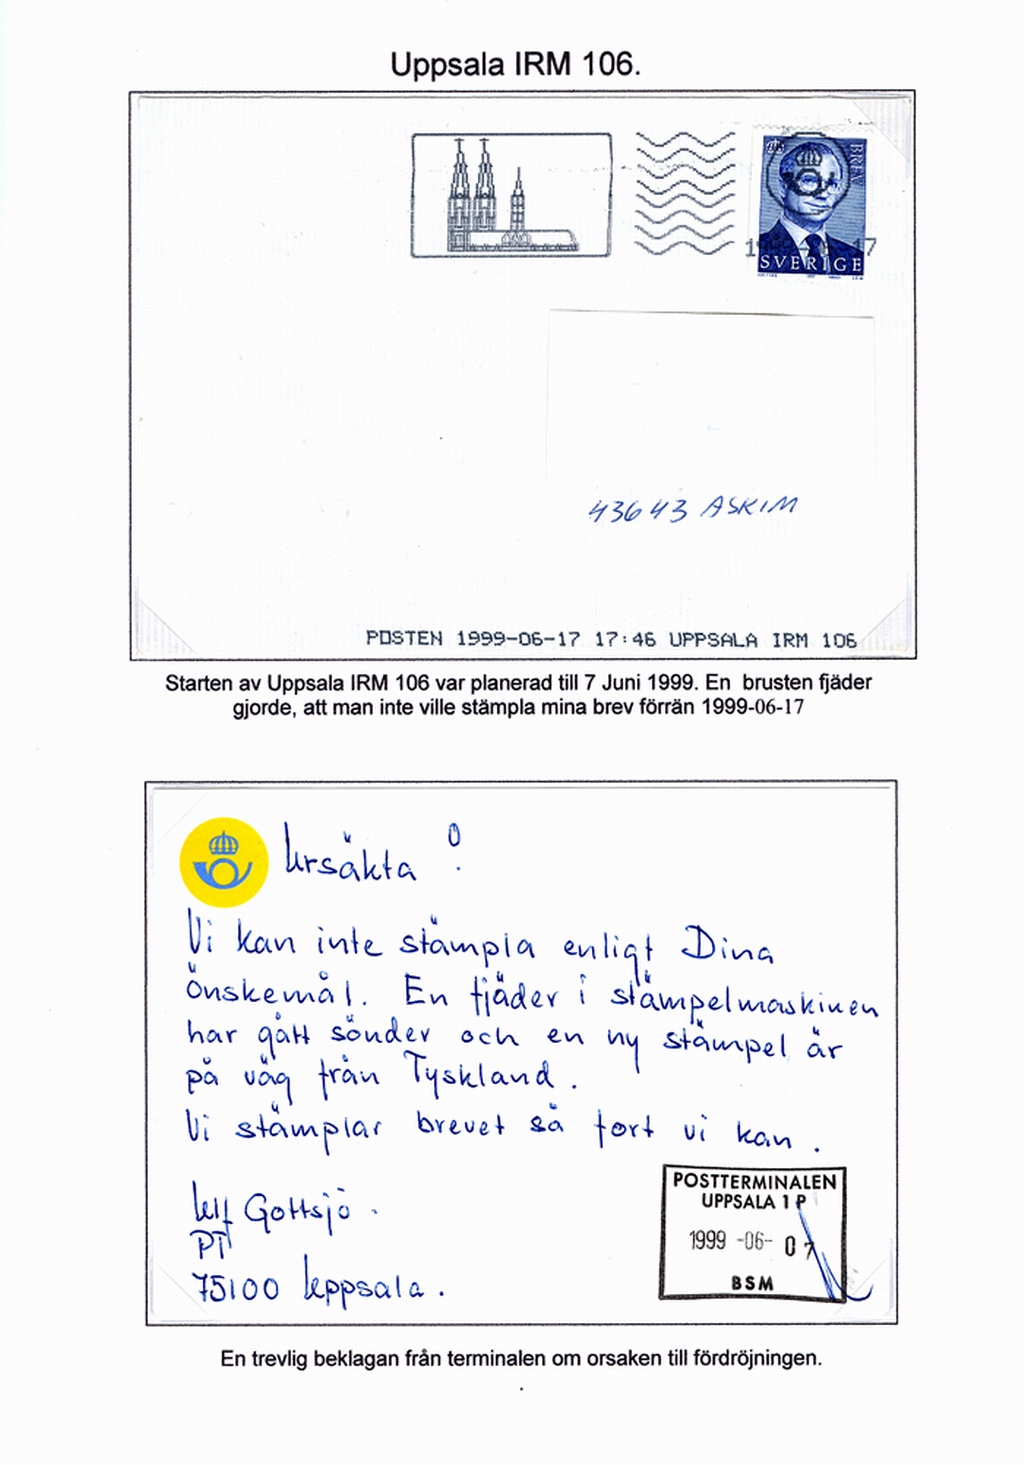 Uppsala IRM 106.
BREV
SVERIGE
43643 ASKIM
POSTEN 1999-06-17 17:46 UPPSALA IRM 106
Starten av Uppsala IRM 106 var planerad till 7 Juni 1999. En brusten fjäder
gjorde, att man inte ville stämpla mina brev förrän 1999-06-17
Ursäkta !
Vi kan inte stämpla enligt Dina
önskemål. En fjäder i stämpelmaskinen
har gått sönder och en ny stämpel är
på väg från Tyskland.
Vi stämplar brevet så fort vi kan.
Ulf Gottsjö.
PT
75100 Uppsala.
POSTTERMINALEN
UPPSALA 1 P
1999 -06- 07
BSM
En trevlig beklagan från terminalen om orsaken till fördröjningen.